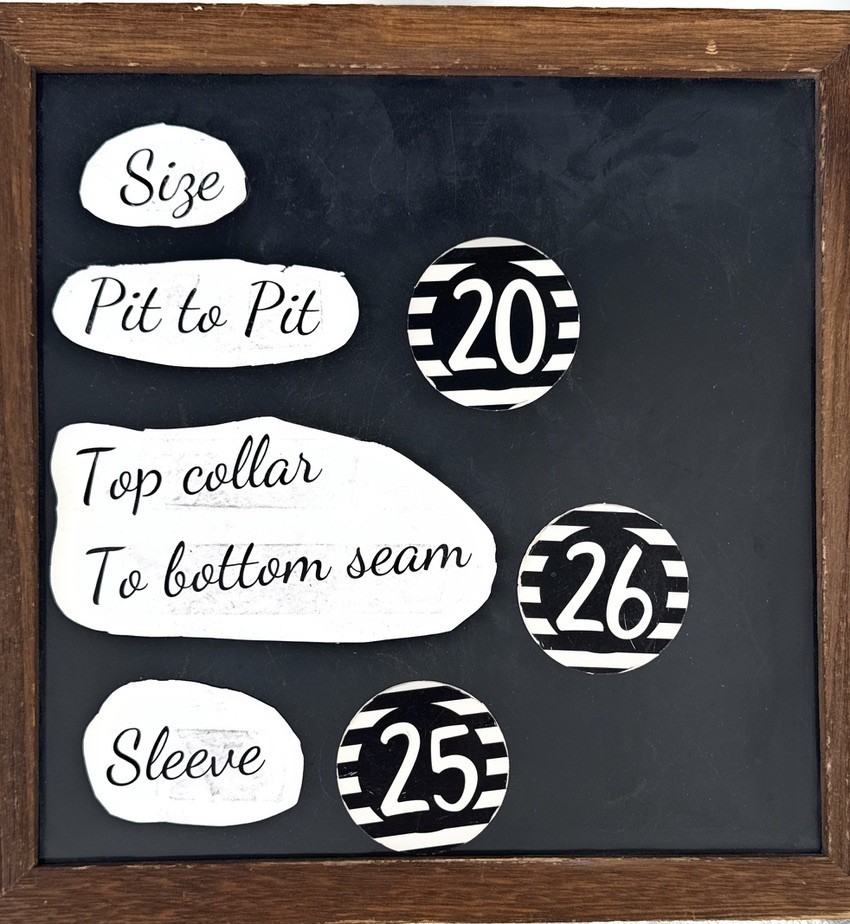 Size
Pit to Pit
20
Top collar
To bottom seam
26
Sleeve
25